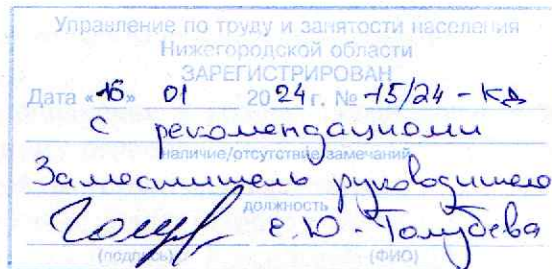 Управление по труду и занятости населения
Нижегородской области
ЗАРЕГИСТРИРОВАН
Дата «16» 01 2024 г. № 15/24 - КД
с рекомендациями
наличие/отсутствие замечаний
Заместитель руководителя
должность
Е.Ю. Голубева
(подпись) (ФИО)